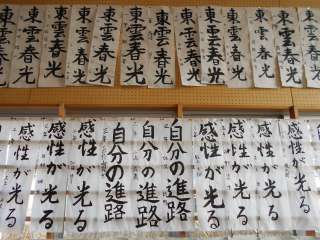 東雲春光
東雲春光
東雲春光
東雲春光
東雲春光
東雲春光
東雲春光
東雲春光
東雲春光
東雲春光
東雲春光
東雲春光
感性が光る
感性が光る
感性が光る
感性が光る
自分の進路
自分の進路
自分の進路
感性が光る
感性が光る
感性が光る